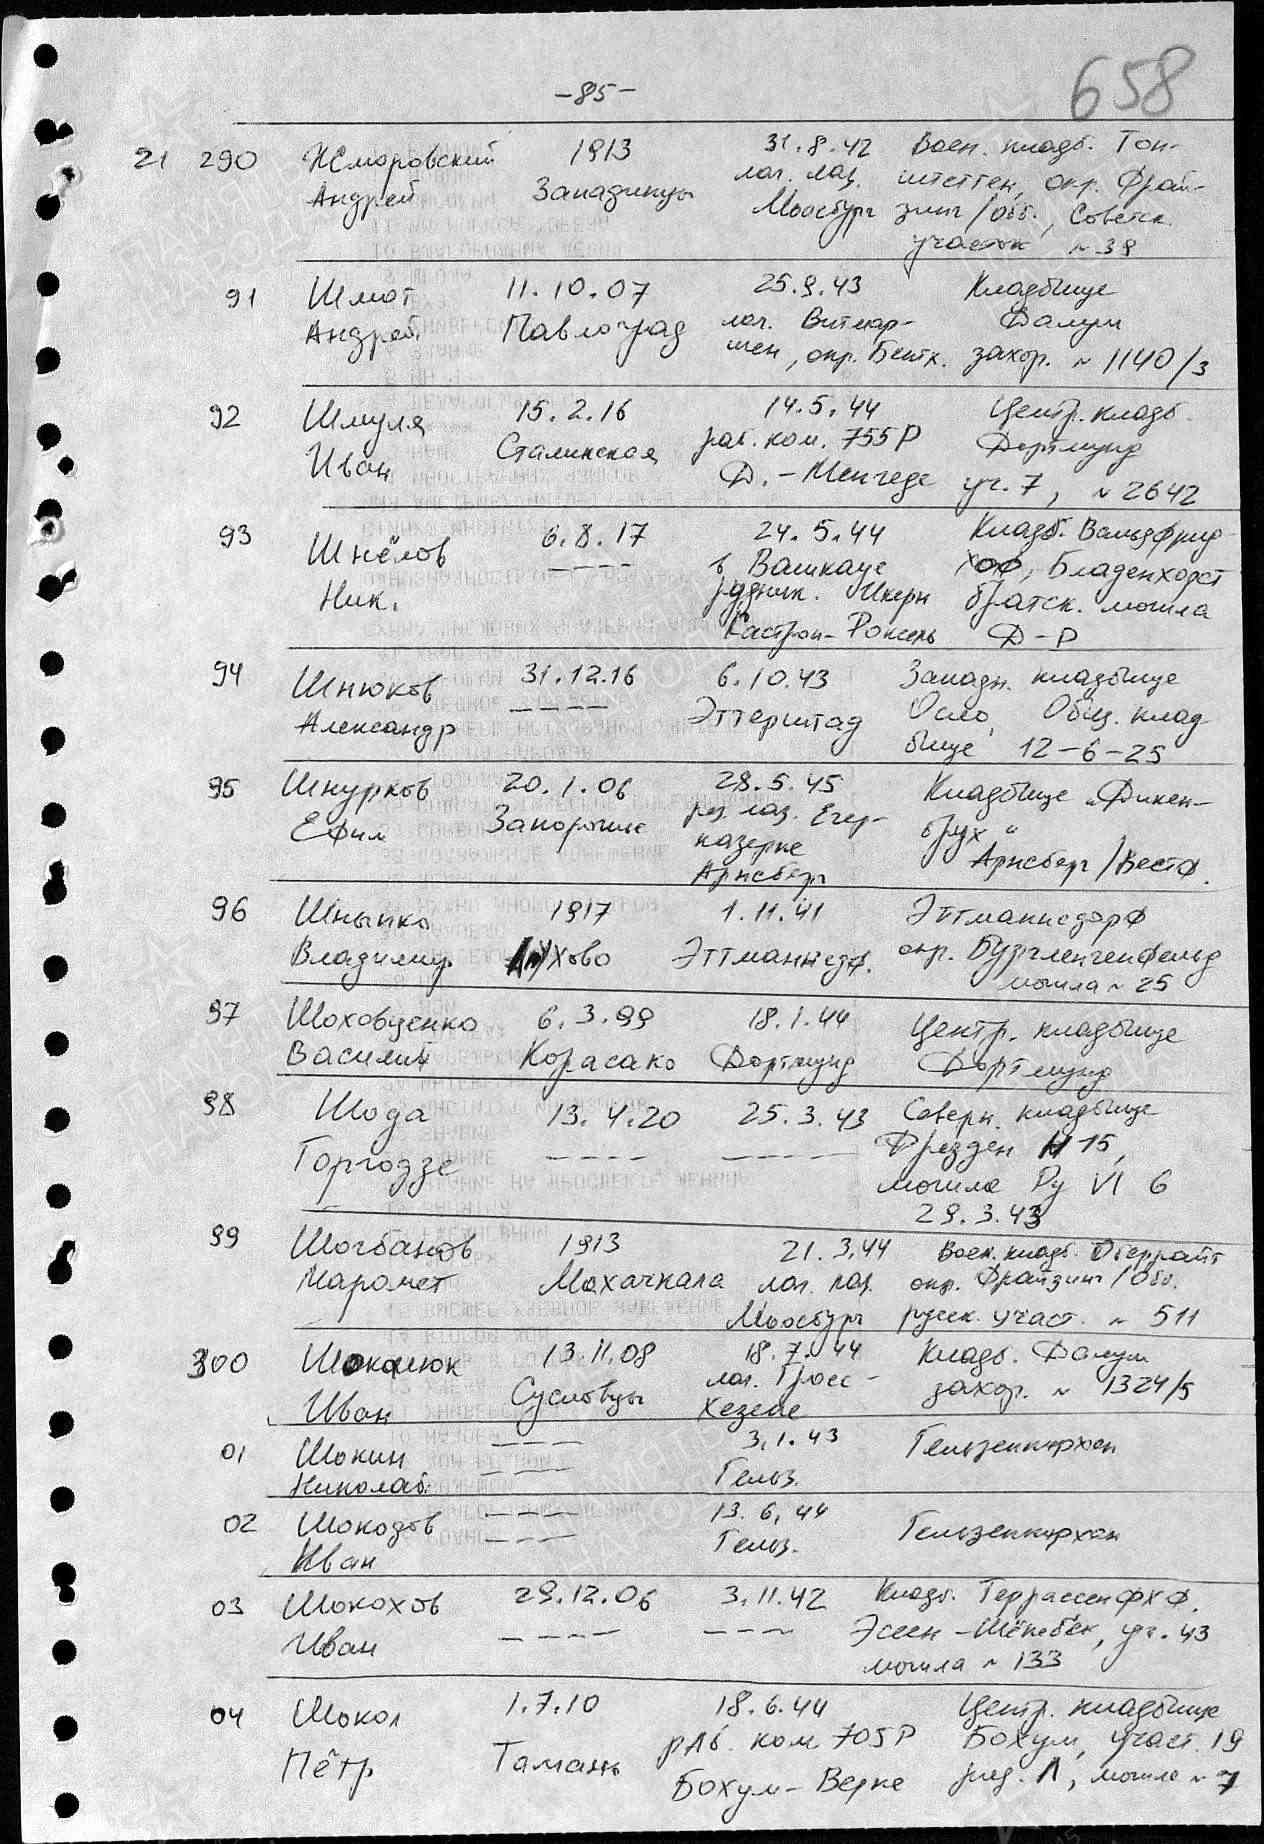 -85-
658
21 290 Андрей 1913 Западинцы
31.8.42 лаг. лаз. Моосбург
Воен. кладб. Тон-
штеттен, окр. Фрай-
зинг/Обб., Советск.
участок №39
91 Шмат Андрей
11.10.07 Павлоград
25.9.43 лаг. Витмар-
шен, окр. Бентх.
Кладбище
Далум
захор. №1140/3
92 Шмуля Иван
15.2.16 Сталинская
14.5.44
раб. ком. 755Р
Д.-Менгеде
Центр. кладб.
Дортмунд
уч. 7, №2642
93 Шнёлов Ник.
6.8.17
----
24.5.44
в Вашкауе
рудник. Икерн
Кастроп-Роксель
Кладб. Вальдфрид-
хоф, Бладенхорст
братск. могила
Д-Р
94 Шнюков Александр
31.12.16
----
6.10.43
Эттерштад
Западн. кладбище
Осло, Общ. клад
бище 12-6-25
95 Шнурков Ефим
20.1.06
Запорожье
28.5.45
рез. лаз. Егер-
казерне
Арнсберг
Кладбище „Дикен-
брух“
Арнсберг/Вестф.
96 Шныпко Владимир
1917
1.11.41
Эттманнсдф.
Эттманнсдорф
окр. Бургленгенфельд
могила №25
97 Шоховценко Василий
6.3.99
Корасако
18.1.44
Дортмунд
Центр. кладбище
Дортмунд
98 Шода Горгодзе
13.4.20
----
25.3.43
----
Северн. кладбище
Дрезден N 15,
могила Ру VI 6
29.3.43
99 Шогбанов Маромет
1913
Махачкала
21.3.44
лаг. лаз.
Моосбург
Воен. кладб. Оберрайт
окр. Фрайзинг/Обб.
русск. участ. №511
300 Шокалюк Иван
13.11.08
Сусловцы
18.7.44
лаг. Гросс-
Хезепе
Кладб. Далум
захор. №1324/5
01 Шокин Николай
----
----
3.1.43
Гельз.
Гельзенкирхен
02 Шокодов Иван
----
----
13.6.44
Гельз.
Гельзенкирхен
03 Шокохов Иван
29.12.06
----
3.11.42
----
Кладб. Террассенфхф.
Эссен-Шёнебек, уч. 43
могила №133
04 Шокол Пётр
1.7.10
Тамань
18.6.44
раб. ком 705Р
Бохум-Верне
Центр. кладбище
Бохум, участ. 19
ряд. Л, могила №7